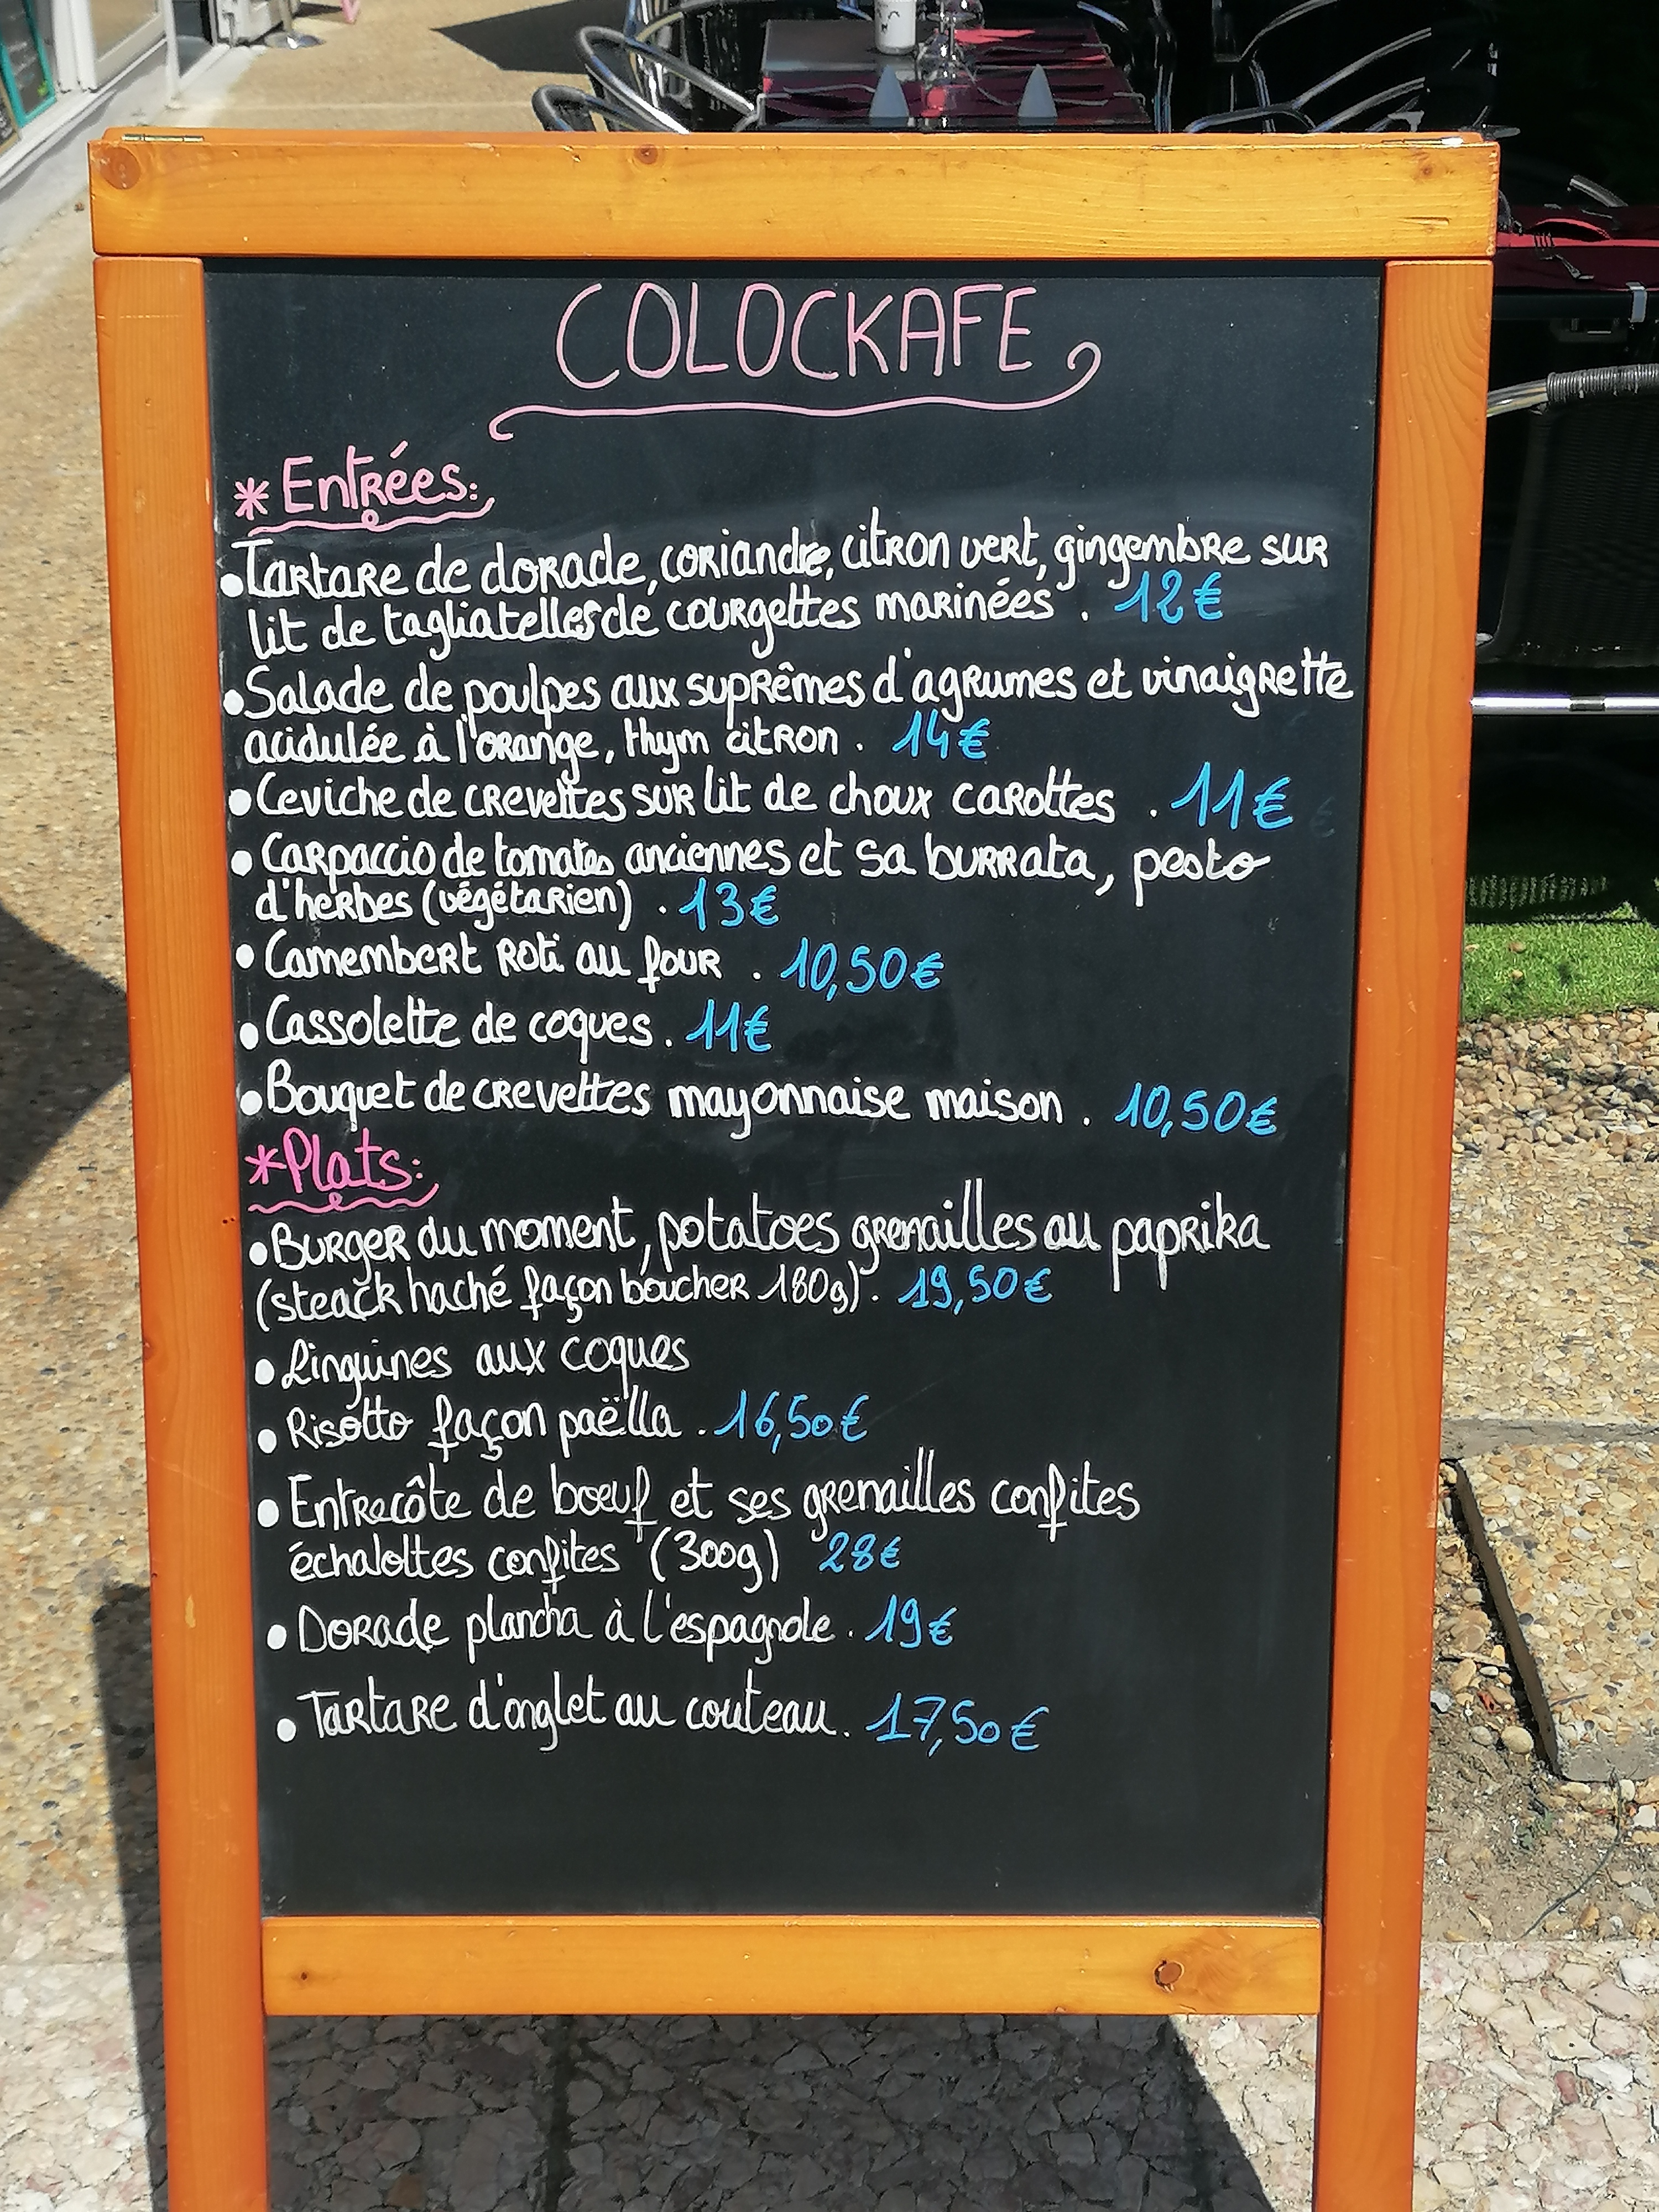 COLOCKAFE
* Entrées:
• Tartare de dorade, coriandre, citron vert, gingembre sur
lit de tagliatelles de courgettes marinées . 12€
• Salade de poulpes aux suprêmes d'agrumes et vinaigrette
acidulée à l'orange, thym citron . 14€
• Ceviche de crevettes sur lit de choux carottes . 11€
• Carpaccio de tomates anciennes et sa burrata, pesto
d'herbes (végétarien) . 13€
• Camembert roti au four . 10,50€
• Cassolette de coques . 11€
• Bouquet de crevettes mayonnaise maison . 10,50€
* Plats:
• Burger du moment, potatoes grenailles au paprika
(steack haché façon boucher 180g) . 19,50€
• Linguines aux coques
• Risotto façon paëlla . 16,50€
• Entrecôte de bœuf et ses grenailles confites
échalottes confites (300g) 28€
• Dorade plancha à l'espagnole . 19€
• Tartare d'onglet au couteau . 17,50€